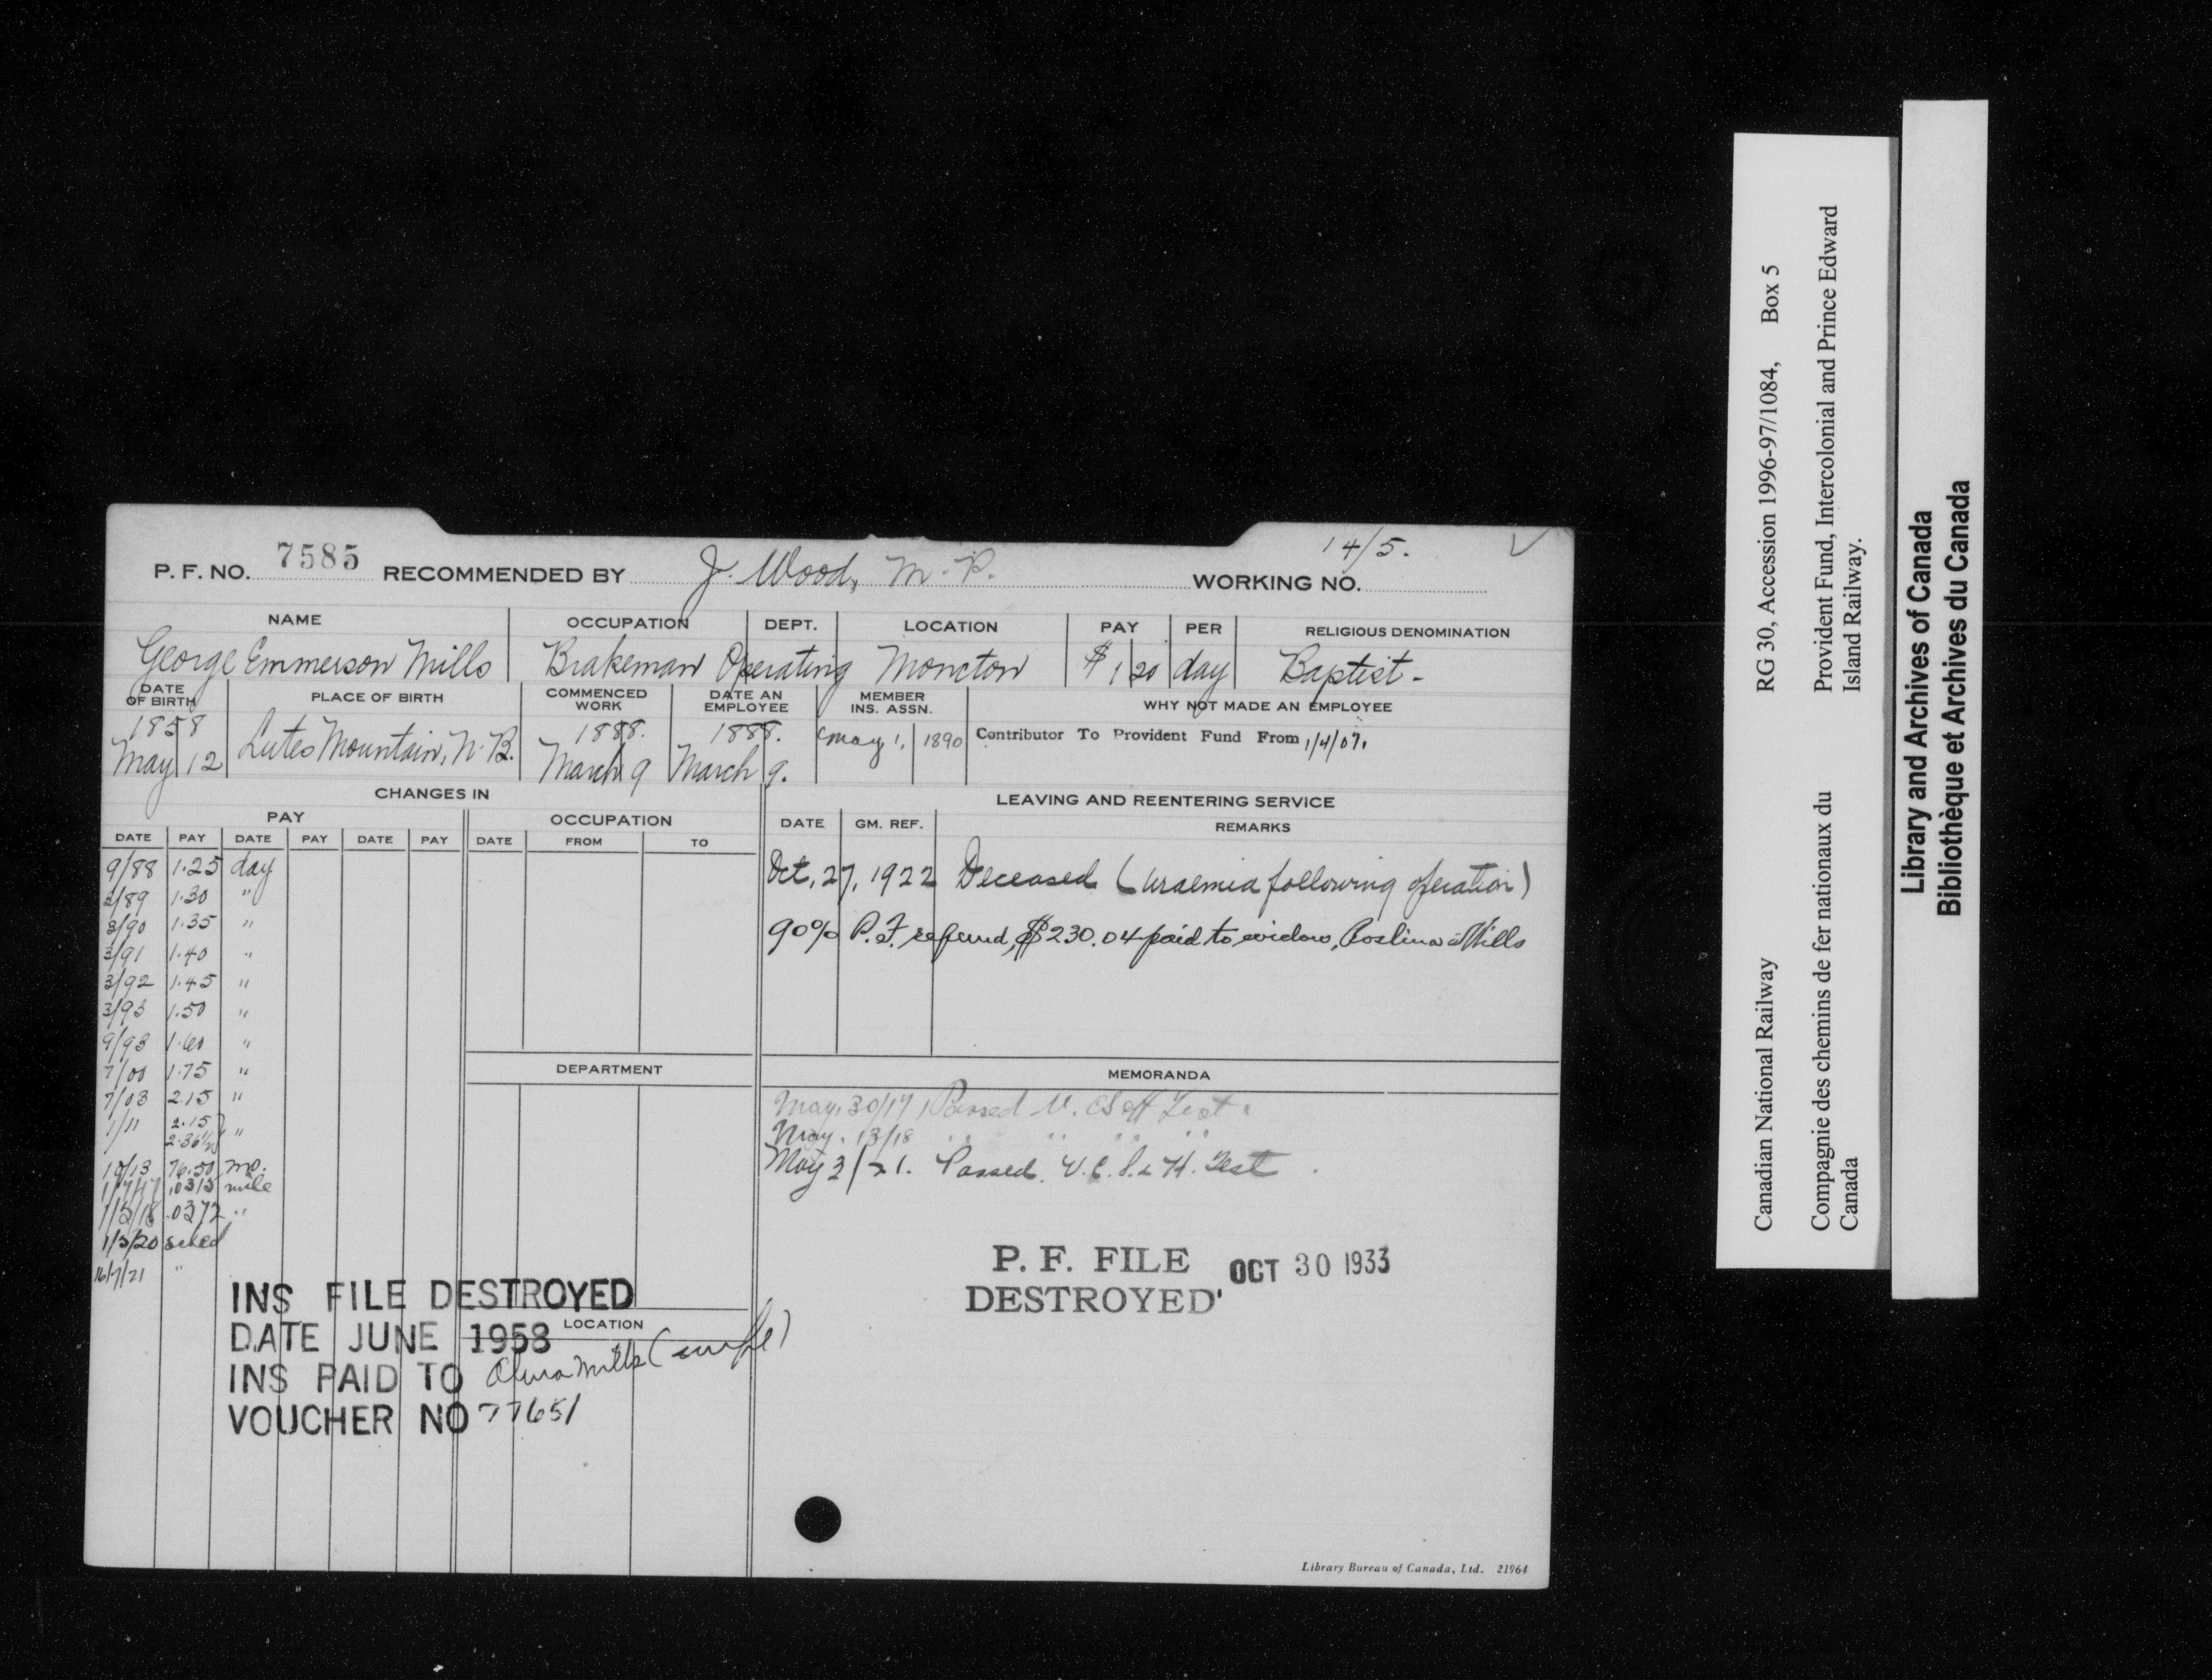 14/5.
P. F. NO. 7585 RECOMMENDED BY J. Wood, M. P. WORKING NO.
NAME OCCUPATION DEPT. LOCATION PAY PER RELIGIOUS DENOMINATION
George Emmerson Mills Brakeman Operating Moncton $1 20 day Baptist-
DATE OF BIRTH PLACE OF BIRTH COMMENCED WORK DATE AN EMPLOYEE MEMBER INS. ASSN. WHY NOT MADE AN EMPLOYEE
1858 May 12 Lutes Mountain, N. B. 1888. March 9 1888. March 9. May 1, 1890 Contributor To Provident Fund From 1/4/07.
CHANGES IN
PAY
OCCUPATION
DATE PAY DATE PAY DATE PAY DATE FROM TO
9/88 1.25 day
3/89 1.30 "
3/90 1.35 "
3/91 1.40 "
3/92 1.45 "
3/93 1.50 "
9/93 1.60 "
7/00 1.75 "
7/03 2.15 "
1/11 2.15
2.36½ "
10/13 76.50 mo.
.0315 mile
.0372 "
1/5/20 sched
16/7/21 "
DEPARTMENT
LOCATION
INS FILE DESTROYED
DATE JUNE 1958
INS PAID TO Mills (wife)
VOUCHER NO 77651
LEAVING AND REENTERING SERVICE
DATE GM. REF. REMARKS
Oct, 27, 1922 Deceased (uraemia following operation)
90% P. F. refund, $230.04 paid to widow, Mills
MEMORANDA
May. 30/17, Passed V. Test.
May. 13/18 " " " "
May 3/21. Passed. V. C. S. & H. Test.
P. F. FILE
DESTROYED
OCT 30 1933
Library Bureau of Canada, Ltd. 21964
Canadian National Railway RG 30, Accession 1996-97/1084, Box 5
Compagnie des chemins de fer nationaux du Canada
Provident Fund, Intercolonial and Prince Edward Island Railway.
Library and Archives of Canada
Bibliothèque et Archives du Canada